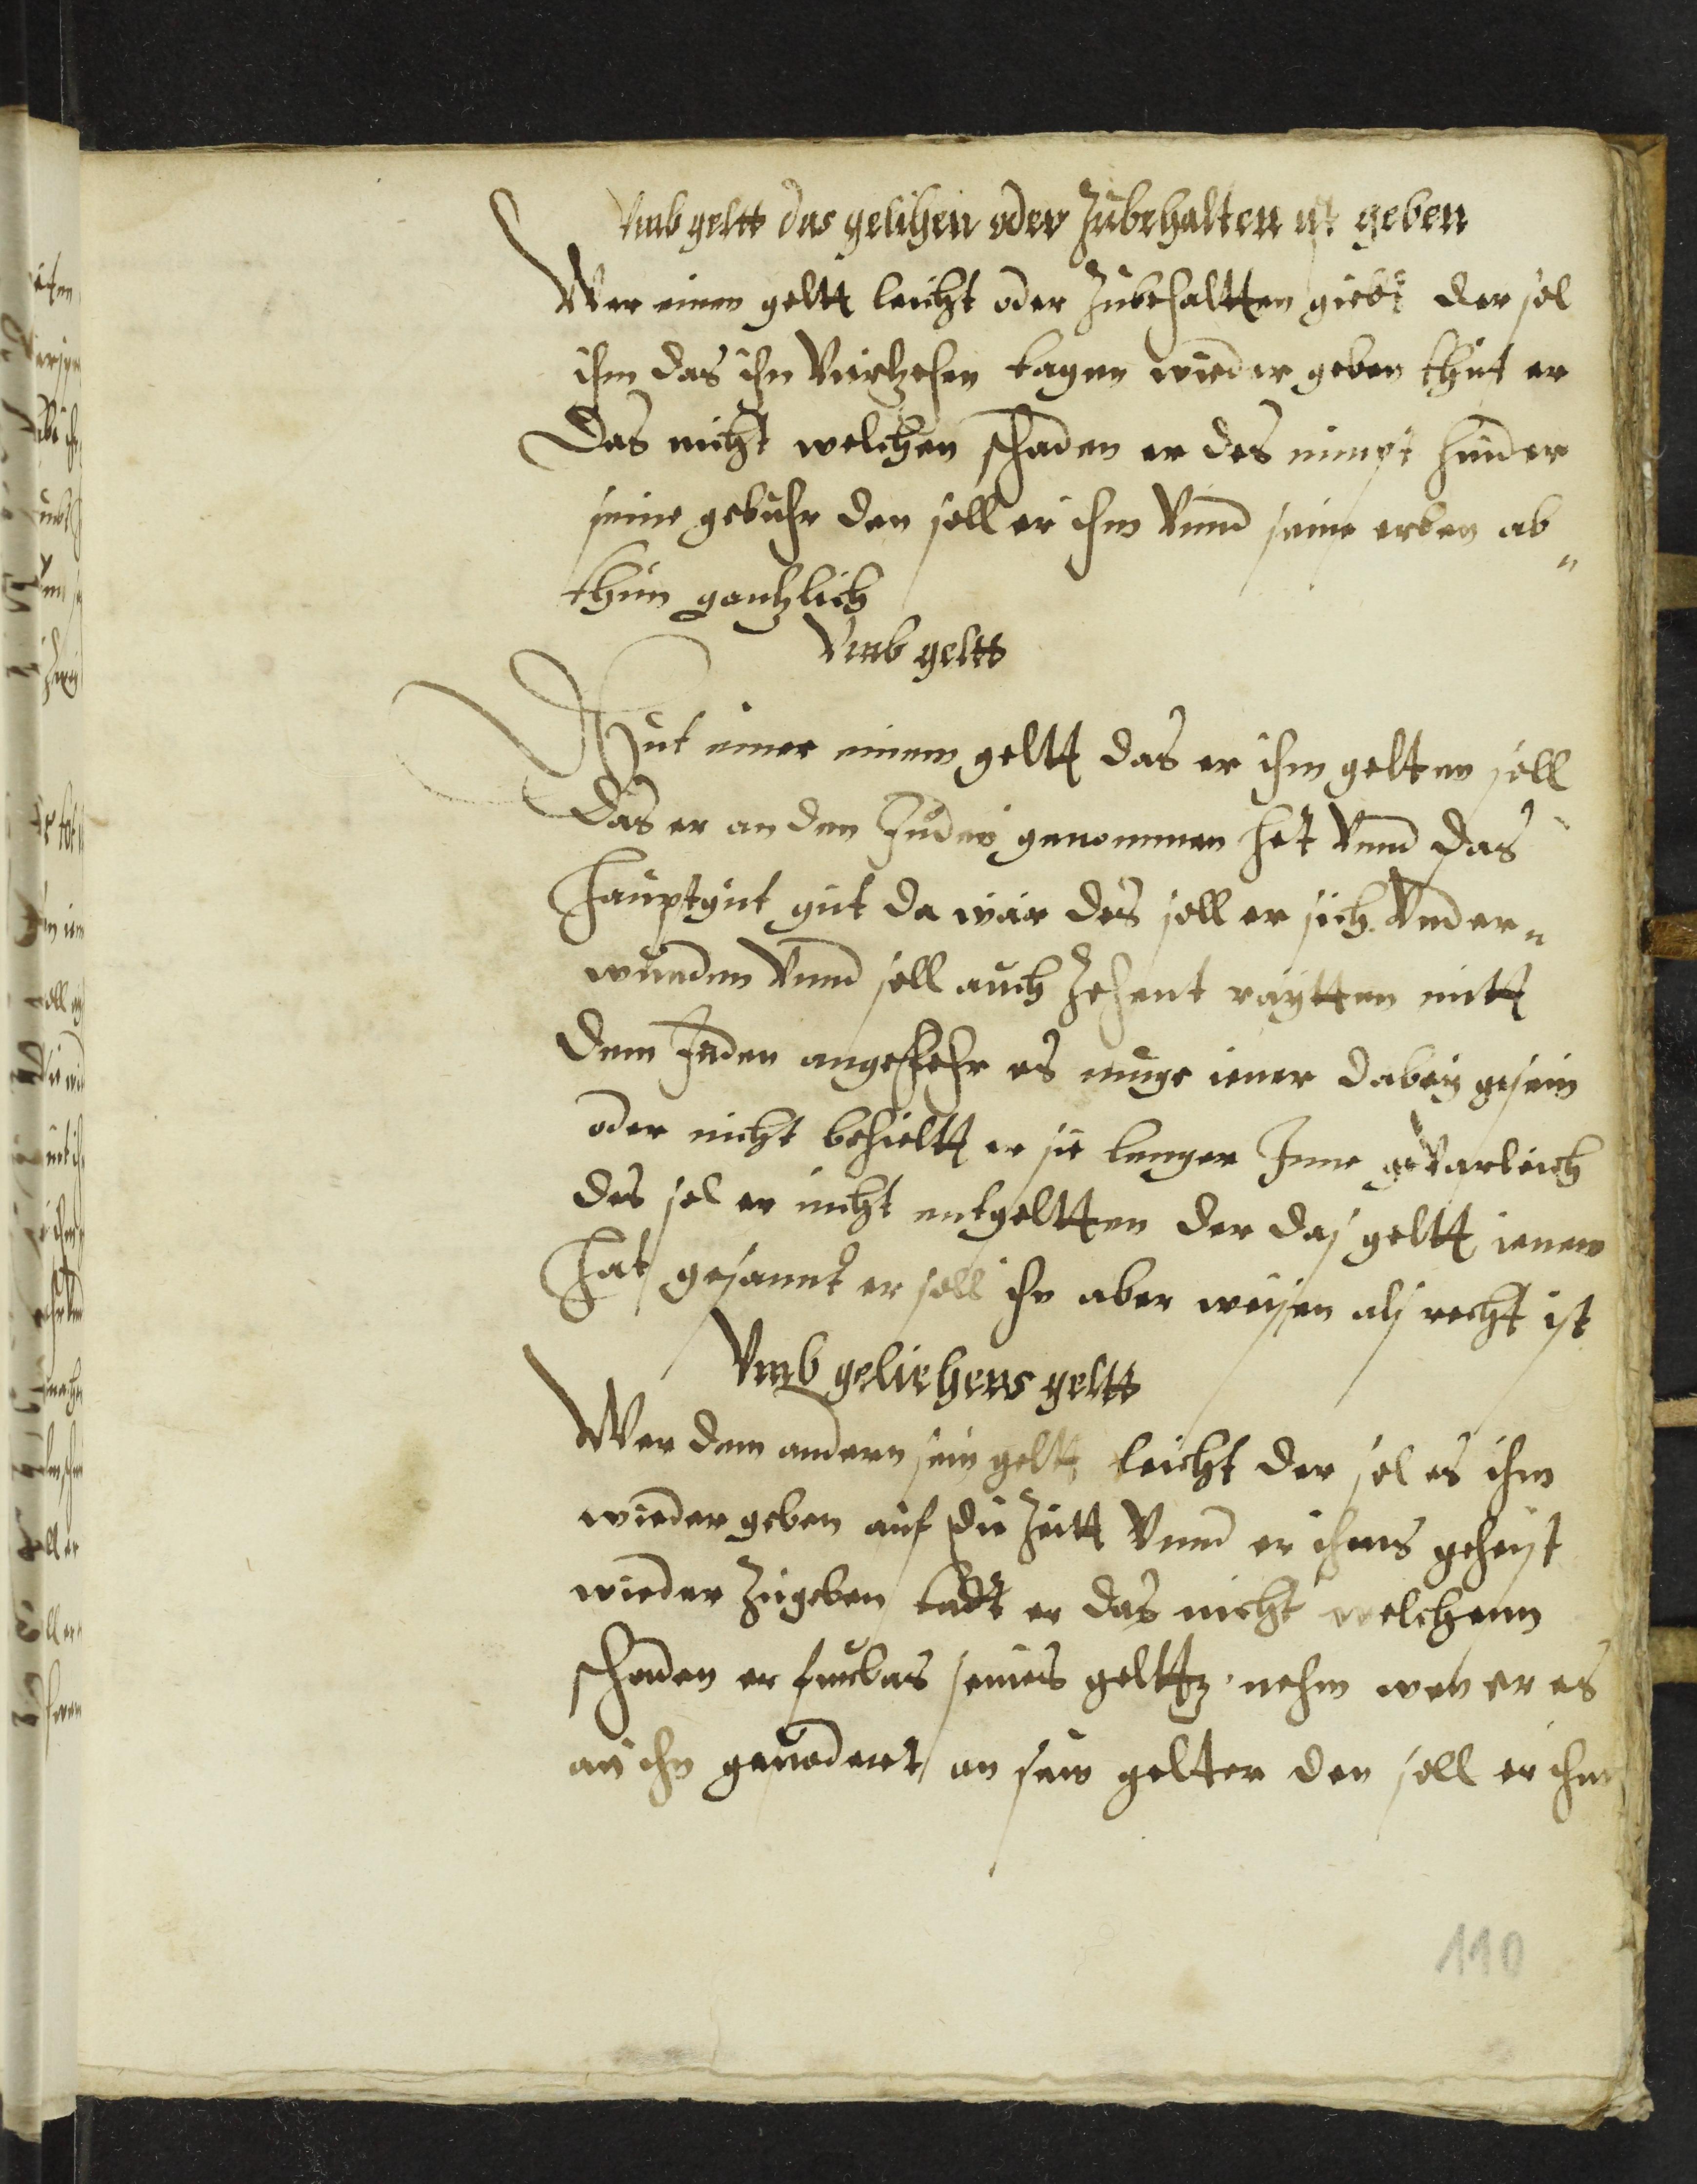 Vmb geltt das gelihen oder Zubehalten ist geben
Wer einem geltt leicht oder Zubehaltten giebt der sol
ihm das ihn Viertzehen tagen wieder geben thut er
Das nicht welchen schaden er des nimpt hinder
seine gebuhr den soll er ihm Vnnd seine erben ab
thun gantzlich
Vmb geltt
Thut einer einem geltt das er ihm gelten soll
Das er an den Juden genommen het Vnnd das
Hauptgut gut da wär des soll er sich Vnder
wunden Vnnd soll auch Zehent raytten mitt
Dem Juden angefehr es muge iener dabey gesein
oder nicht behieltt er sie lenger Inne geVarleich
des sol er nicht entgeltten der das geltt ienem
Hat gesannt er soll ihn aber weisen als recht ist
Vmb geliehens geltt
Wer dem andern sein geltt leicht der sol es ihm
wieder geben auf die Zeitt Vnnd er ihms geheist
wieder Zugeben tadt er das nicht welchenn
schaden er furbas seines geltts nehm wen er es
an ihn geuodert an sein gelter den soll er ihm
110